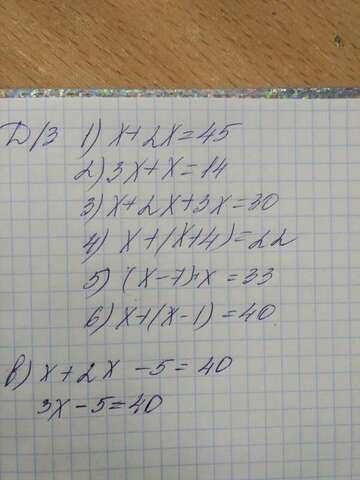 Д/З 1) x+2x=45
2) 3x+x=14
3) x+2x+3x=30
4) x+(x+4)=22
5) (x-7)+x=33
6) x+(x-1)=40
в) x+2x-5=40
3x-5=40